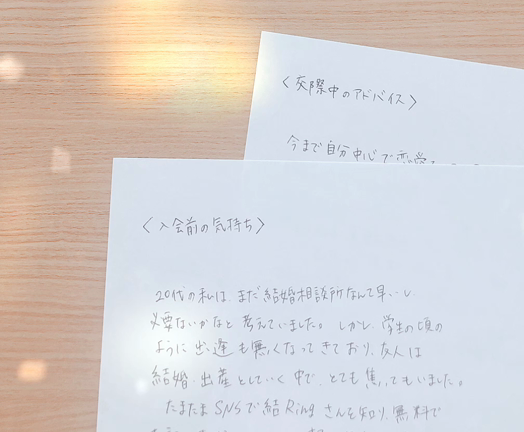 〈交際中のアドバイス〉
今まで自分中心で恋愛
〈入会前の気持ち〉
20代の私は、まだ結婚相談所なんて早いし
必要ないかなと考えていました。しかし、学生の頃の
ように出逢も無くなってきており、友人は
結婚、出産としていく中で、とても焦ってもいました。
たまたまSNSで結Ringさんを知り、無料で